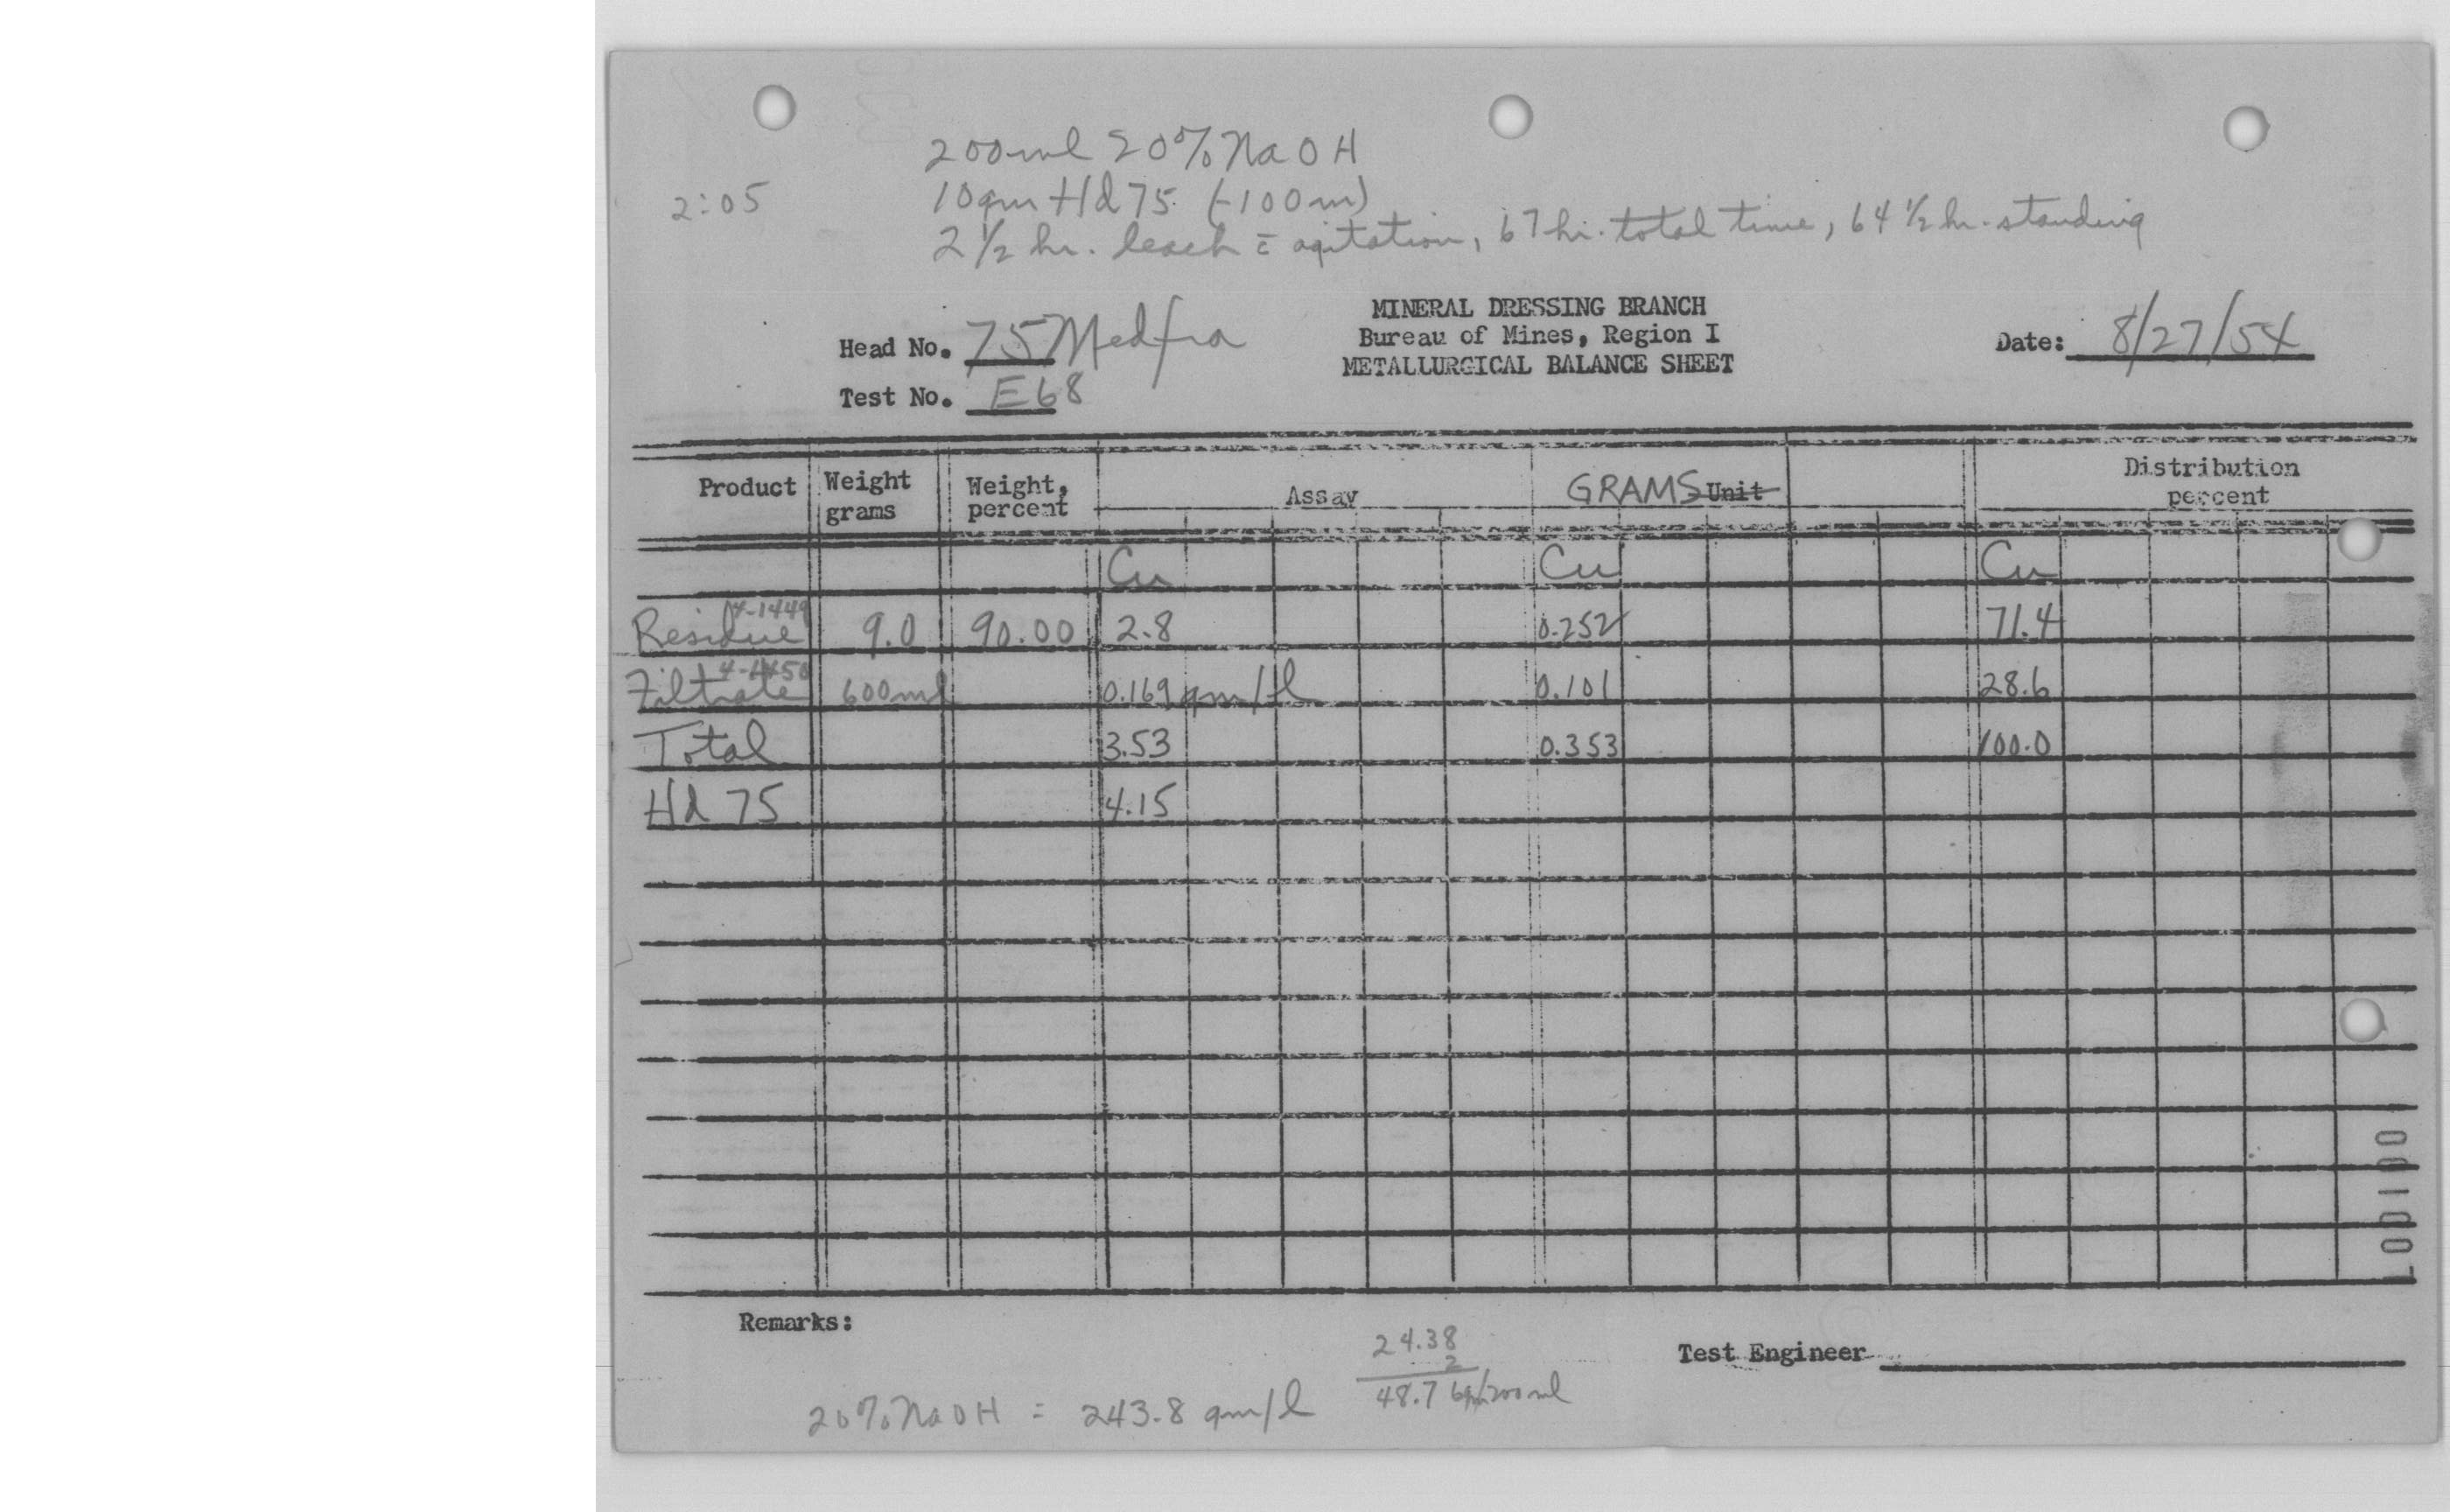 200ml 20% NaOH
2:05
10gm Hd 75 (-100m)
2 1/2 hr. leach c̄ agitation, 67 hr. total time, 64 1/2 hr. standing
MINERAL DRESSING BRANCH
Bureau of Mines, Region I
METALLURGICAL BALANCE SHEET
Head No. 75 Medfra
Date: 8/27/54
Test No. E68
Product Weight grams Weight, percent Assay GRAMS Unit Distribution percent
Cu Cu Cu
4-1449
Residue 9.0 90.00 2.8 0.252 71.4
4-1450
Filtrate 600ml 0.169 gm/l 0.101 28.6
Total 3.53 0.353 100.0
Hd 75 4.15
Remarks:
Test Engineer
24.38
2
48.76 gm/200ml
20% NaOH = 243.8 gm/l